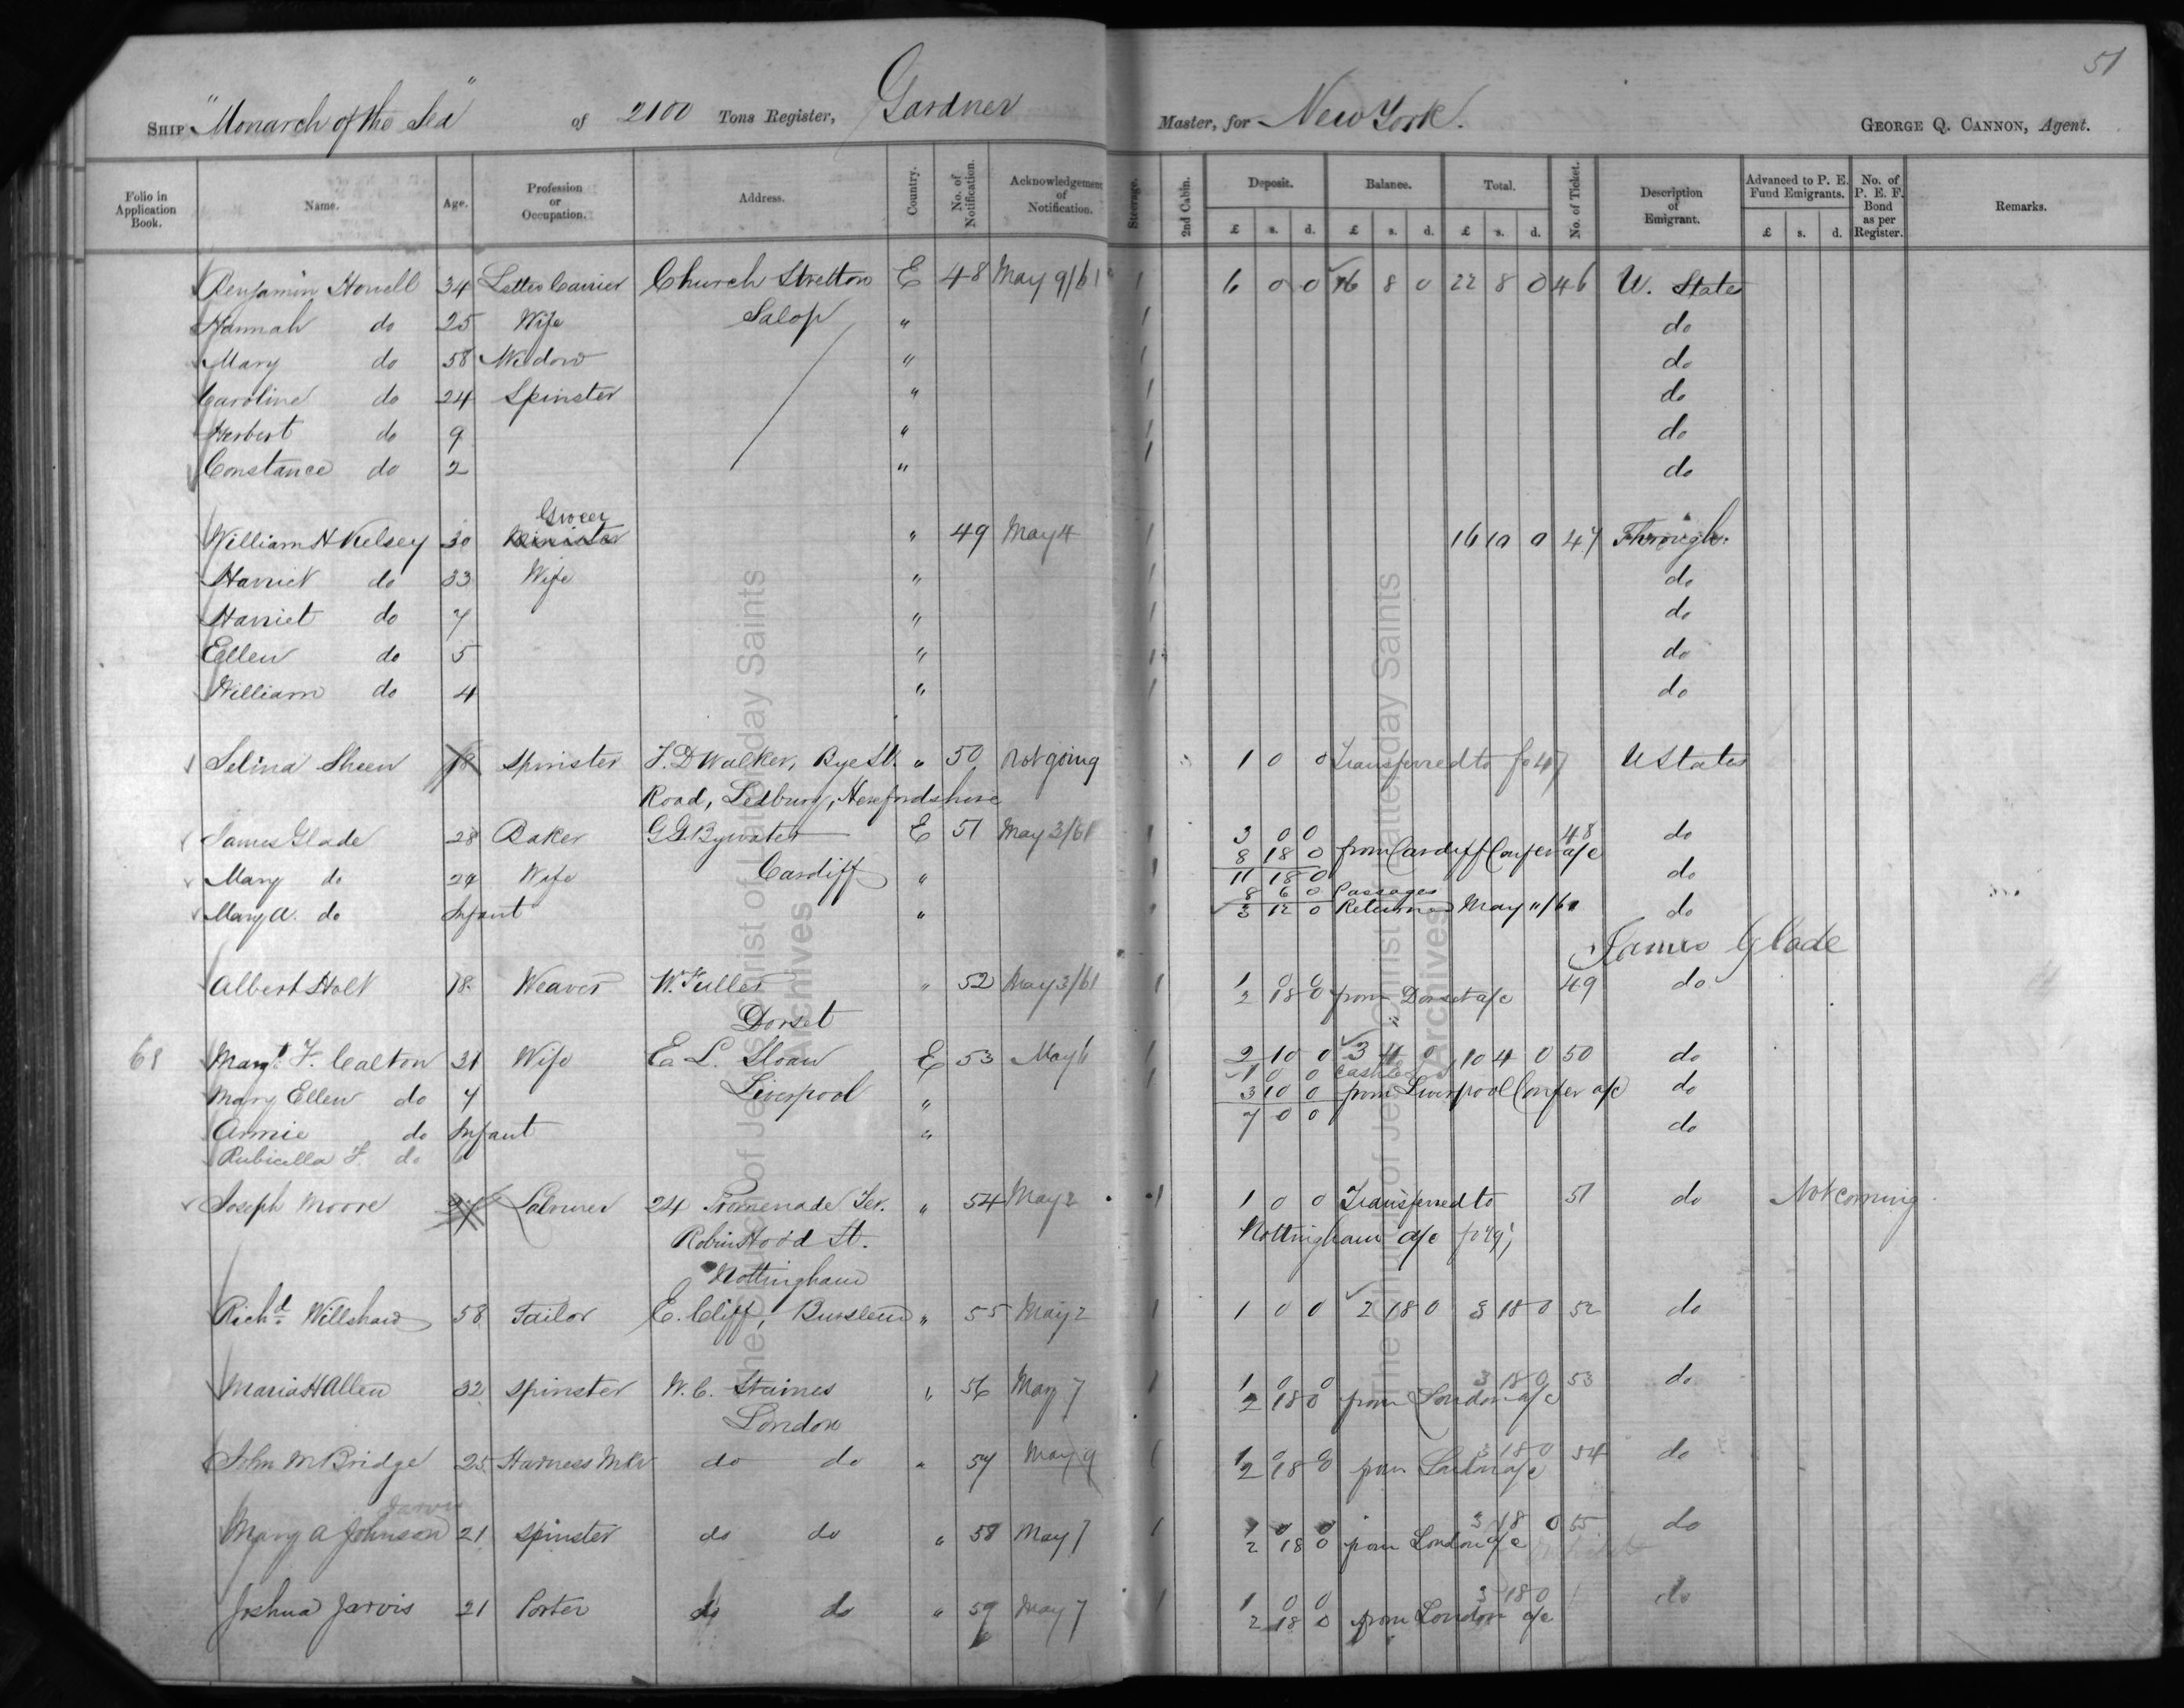 51
SHIP "Monarch of the Sea" of 2100 Tons Register, Gardner Master, for New York. GEORGE Q. CANNON, Agent.
Folio in Application Book. Name. Age. Profession or Occupation. Address. Country. No. of Notification. Acknowledgement of Notification. Steerage. 2nd Cabin. Deposit. Balance. Total. No. of Ticket. Description of Emigrant. Advanced to P. E. Fund Emigrants. No. of P. E. F. Bond as per Register. Remarks.
£ s. d. £ s. d. £ s. d. £ s. d.
Benjamin Howell 34 Letter Carrier Church Stretton E 48 May 9/61 1 6 0 0 16 8 0 22 8 0 46 U. States
Hannah do 25 Wife Salop " 1 do
Mary do 58 Widow " 1 do
Caroline do 24 Spinster " 1 do
Herbert do 9 " 1 do
Constance do 2 " 1 do
Grocer
William H Kelsey 30 Minister " 49 May 4 1 16 10 0 47 Through.
Harriet do 33 Wife " 1 do
Harriet do 7 " 1 do
Ellen do 5 " 1 do
William do 4 " 1 do
Selina Sheen 18 Spinster F. D Walker, Bye St. " 50 not going 1 0 0 Transferred to fo 47 U States
Road, Ledbury, Herefordshire
James Glade 28 Baker G G. Bywater E 51 May 3/61 1 3 0 0 48 do
8 18 0 from Cardiff Confer a/c
Mary do 29 Wife Cardiff " 1 11 18 0 do
8 6 0 Passages
Mary A. do Infant " 1 3 12 0 Returned May "/61 do
James Glade
Albert Holt 18 Weaver W. Fuller " 52 May 3/61 1 1 0 0 49 do
2 18 0 from Dorset a/c
Dorset
68 Margt. F. Calton 31 Wife E. L. Sloan E 53 May 6 1 2 10 0 3 4 0 10 4 0 50 do
1 0 0 Cash
Mary Ellen do 7 Liverpool " 1 3 10 0 from Liverpool Confer a/c do
7 0 0
Annie do Infant " do
Rubicella F. do 6
Joseph Moore Labourer 24 Promenade Ter. " 54 May 2 1 1 0 0 Transferred to 51 do Not coming.
Robin Hood St. Nottingham a/c fo 49;
Nottingham
Richd. Willshaw 58 Tailor E. Cliff, Burslem " 55 May 2 1 1 0 0 2 18 0 3 18 0 52 do
Maria H Allen 32 Spinster W. C. Staines " 56 May 7 1 1 0 0 3 18 0 53 do
2 18 0 from London a/c
London
John M Bridge 25 Harness Mkr do do " 57 May 9 1 1 0 0 3 18 0 54 do
2 18 0 from London a/c
Jarvis
Mary A Johnson 21 Spinster do do " 58 May 7 1 1 0 0 3 18 0 55 do
2 18 0 from London a/c
Joshua Jarvis 21 Porter do do " 59 May 7 1 1 0 0 3 18 0 do
2 18 0 from London a/c
The Church of Jesus Christ of Latter-day Saints
Archives
The Church of Jesus Christ of Latter-day Saints
Archives